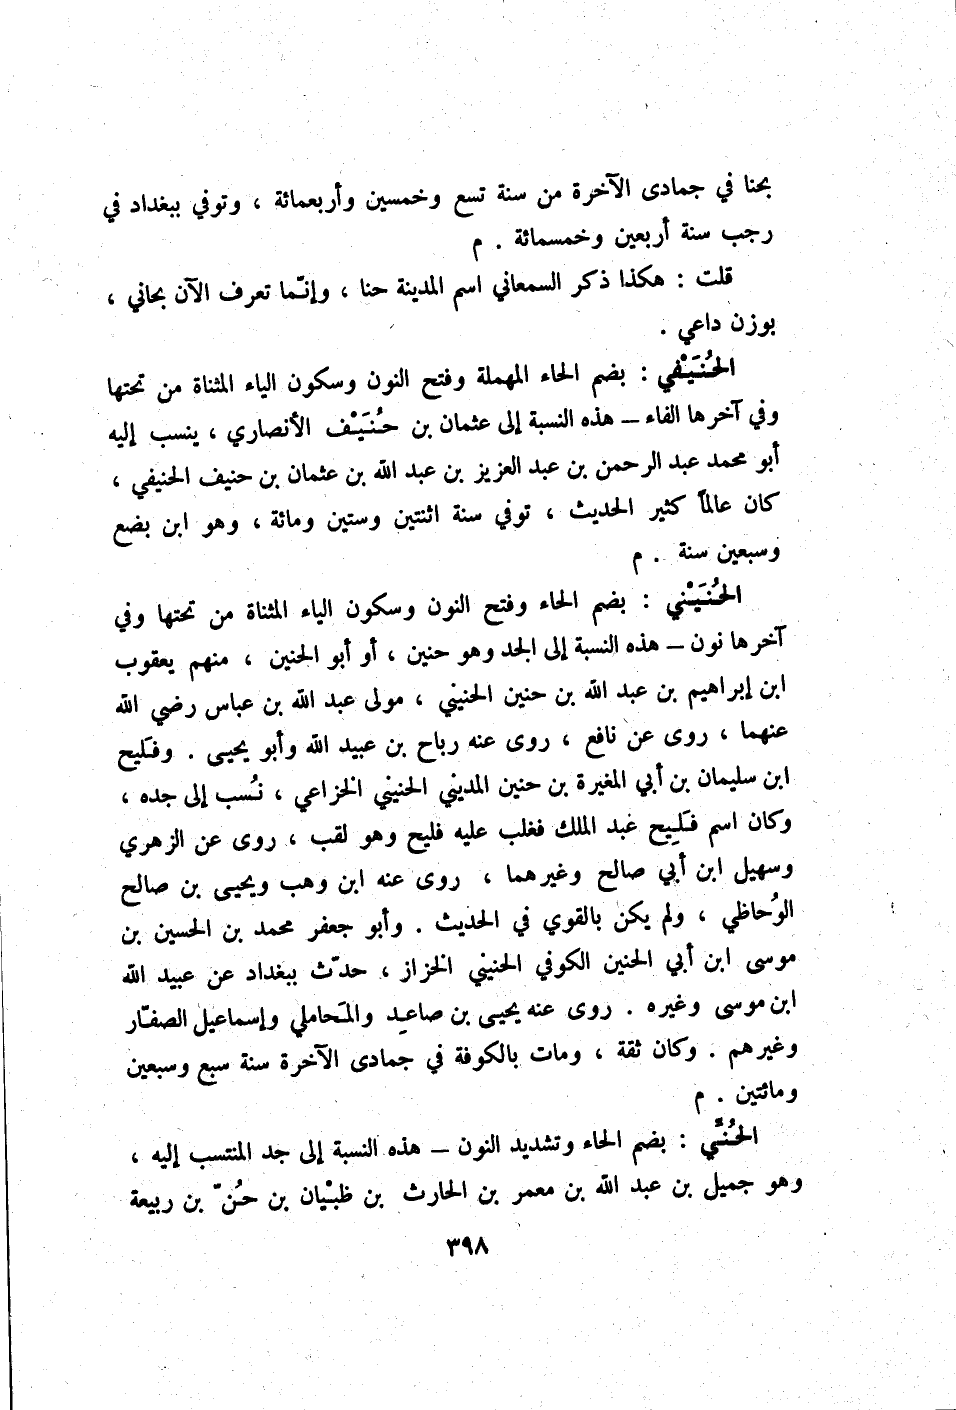 بحنا في جمادى الآخرة من سنة تسع وخمسين وأربعمائة ، وتوفي ببغداد في
رجب سنة أربعين وخمسمائة . م
قلت : هكذا ذكر السمعاني اسم المدينة حنا ، وإنّما تعرف الآن بحاني ،
بوزن داعي .
الحُنَيْفي : بضم الحاء المهملة وفتح النون وسكون الياء المثناة من تحتها
وفي آخرها الفاء – هذه النسبة إلى عثمان بن حُنَيْف الأنصاري ، ينسب إليه
أبو محمد عبد الرحمن بن عبد العزيز بن عبد الله بن عثمان بن حنيف الحنيفي ،
كان عالماً كثير الحديث ، توفي سنة اثنتين وستين ومائة ، وهو ابن بضع
وسبعين سنة . م
الحُنَيْني : بضم الحاء وفتح النون وسكون الياء المثناة من تحتها وفي
آخرها نون – هذه النسبة إلى الجد وهو حنين ، أو أبو الحنين ، منهم يعقوب
ابن إبراهيم بن عبد الله بن حنين الحنيني ، مولى عبد الله بن عباس رضي الله
عنهما ، روى عن نافع ، روى عنه رباح بن عبيد الله وأبو يحيى . وفَليح
ابن سليمان بن أبي المغيرة بن حنين المديني الحنيني الخزاعي ، نُسب إلى جده ،
وكان اسم فَلِيح عبد الملك فغلب عليه فليح وهو لقب ، روى عن الزهري
وسهيل ابن أبي صالح وغيرهما ، روى عنه ابن وهب ويحيى بن صالح
الوُحاظي ، ولم يكن بالقوي في الحديث . وأبو جعفر محمد بن الحسين بن
موسى ابن أبي الحنين الكوفي الحنيني الخزاز ، حدّث ببغداد عن عبيد الله
ابن موسى وغيره . روى عنه يحيى بن صاعِد والمَحاملي وإسماعيل الصفّار
وغيرهم . وكان ثقة ، ومات بالكوفة في جمادى الآخرة سنة سبع وسبعين
ومائتين . م
الحُنّي : بضم الحاء وتشديد النون – هذه النسبة إلى جد المنتسب إليه ،
وهو جميل بن عبد الله بن معمر بن الحارث بن ظبْيان بن حُنّ بن ربيعة
٣٩٨